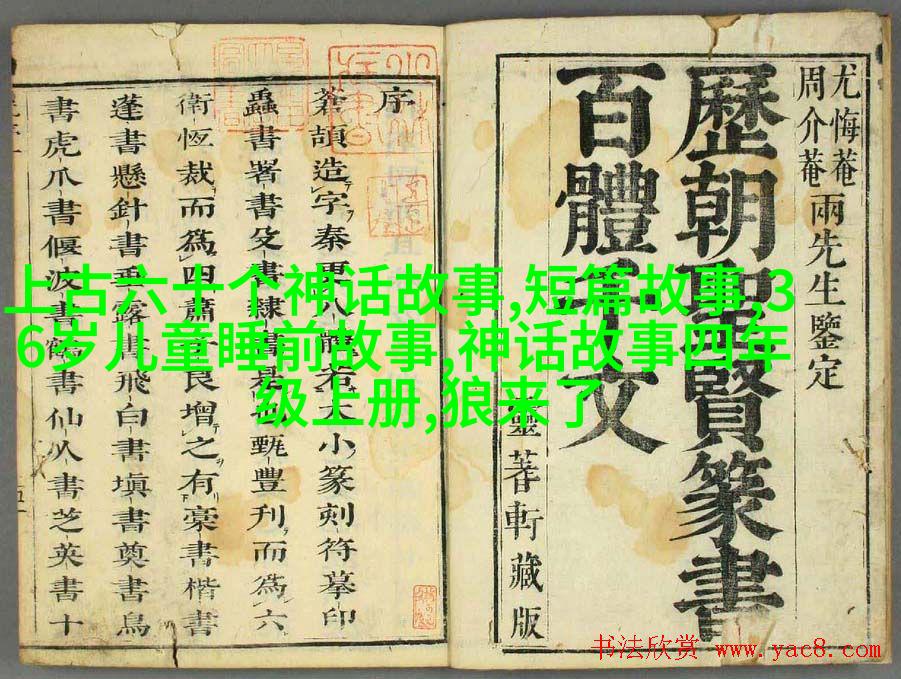 尤悔菴
周介菴
兩先生鑒定
歷朝聖賢篆書
百體千文
蓍軒藏版
序
蒼頡造字秦更八體若大小篆刻符摹印
蟲書署書殳書隷書是也甄豐刊而爲六
衛恆裁而爲四蕭子良增之有槀書楷書
蓬書懸針書垂露書飛白書塡書奠書鳥
書虎爪書偃波書鶴書仙人書芝英書十
上古六十个神话故事,短篇故事,3
6岁儿童睡前故事,神话故事四年
级上册,狼来了
书法欣赏 www.yac8.com